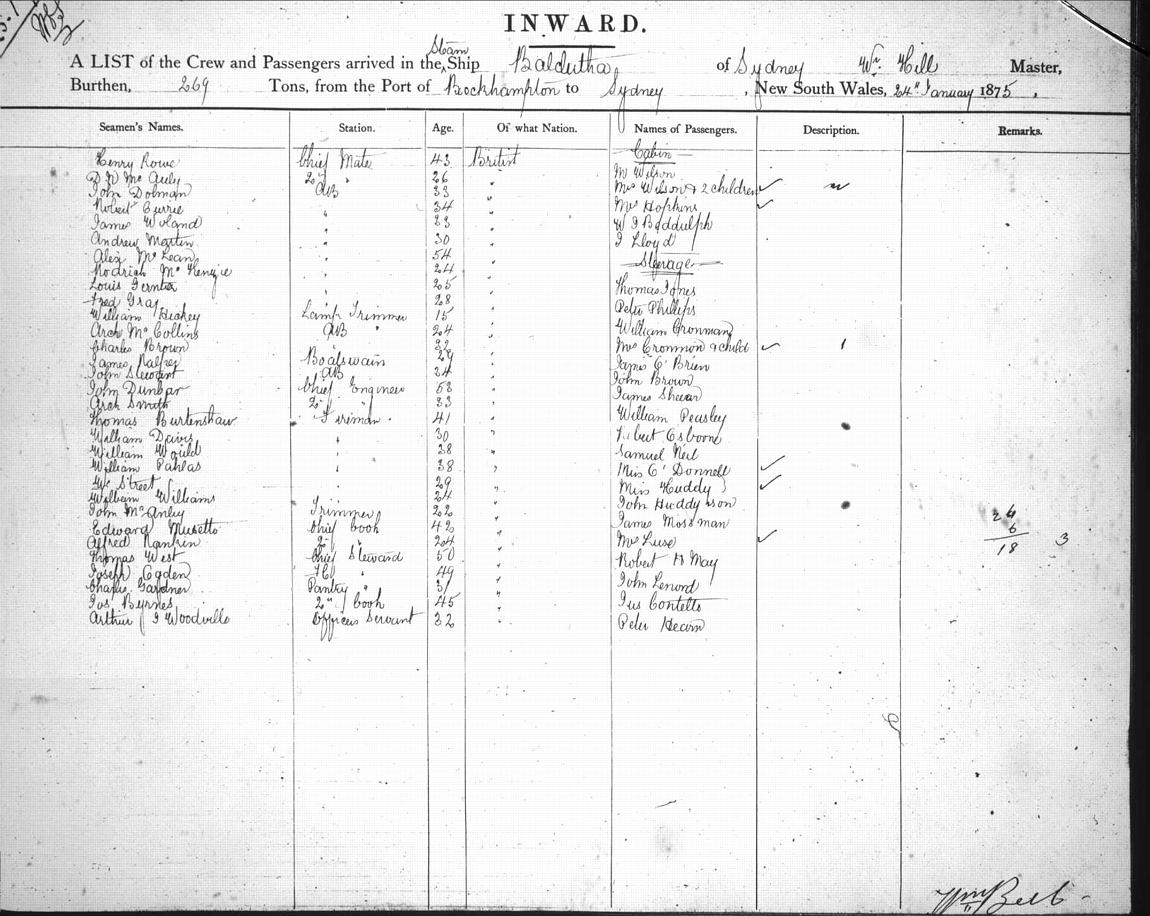 INWARD.
A LIST of the Crew and Passengers arrived in the Steam Ship Balclutha of Sydney Wm. Hill Master,
Burthen, 269 Tons, from the Port of Rockhampton to Sydney, New South Wales, 24" January 1875,
Seamen's Names. Station. Age. Of what Nation. Names of Passengers. Description. Remarks.
Cabin
Henry Rowe Chief Mate 43 British
D N Mc Auly 2d " 26 " Mr Wilson
John Dolman AB 33 " Mrs Wilson & 2 children
Robert Currie " 34 " Mrs Hopkins
James Woland " 23 " W J Baddulph
Andrew Martin " 30 " J Lloyd
Alex McLean " 54 " Steerage
Rodrick McKenzie " 24 "
Louis " 25 " Thomas Jones
Fred Gray " 28 " Peter Phillips
William Hickey Lamp Trimmer 15 "
Arch McCollins AB " 24 " William Cronman
Charles Brown " 32 " Mrs Cronmon & child 1
James Boatswain 29 " James O'Brien
John Stewart AB 24 " John Brown
John Dunbar Chief Engineer 58 " James Sheean
Arch Smith 2d " 33 "
Thomas Burtenshaw Fireman 41 " William Peasley
William Davis " 30 " Osborne
William Would " 28 " Samuel Neil
William Pahlas " 38 " Miss O'Donnell
Wm Street " 29 " Miss Huddy
William Williams " 24 " John Huddy son
John McAnley Trimmer 22 " James Mossman 26
Edward Musetto Chief Cook 42 " 6
Alfred Rankin 2d " 24 " Mrs Luse 18 3
Thomas West Chief Steward 50 " Robert H May
Joseph Ogden " 49 "
Charles Gardner Pantry " 31 " John Lenord
Jos. Byrnes 2" Cook 45 " Contelts
Arthur J Woodville Officers Servant 32 " Peter Hearn